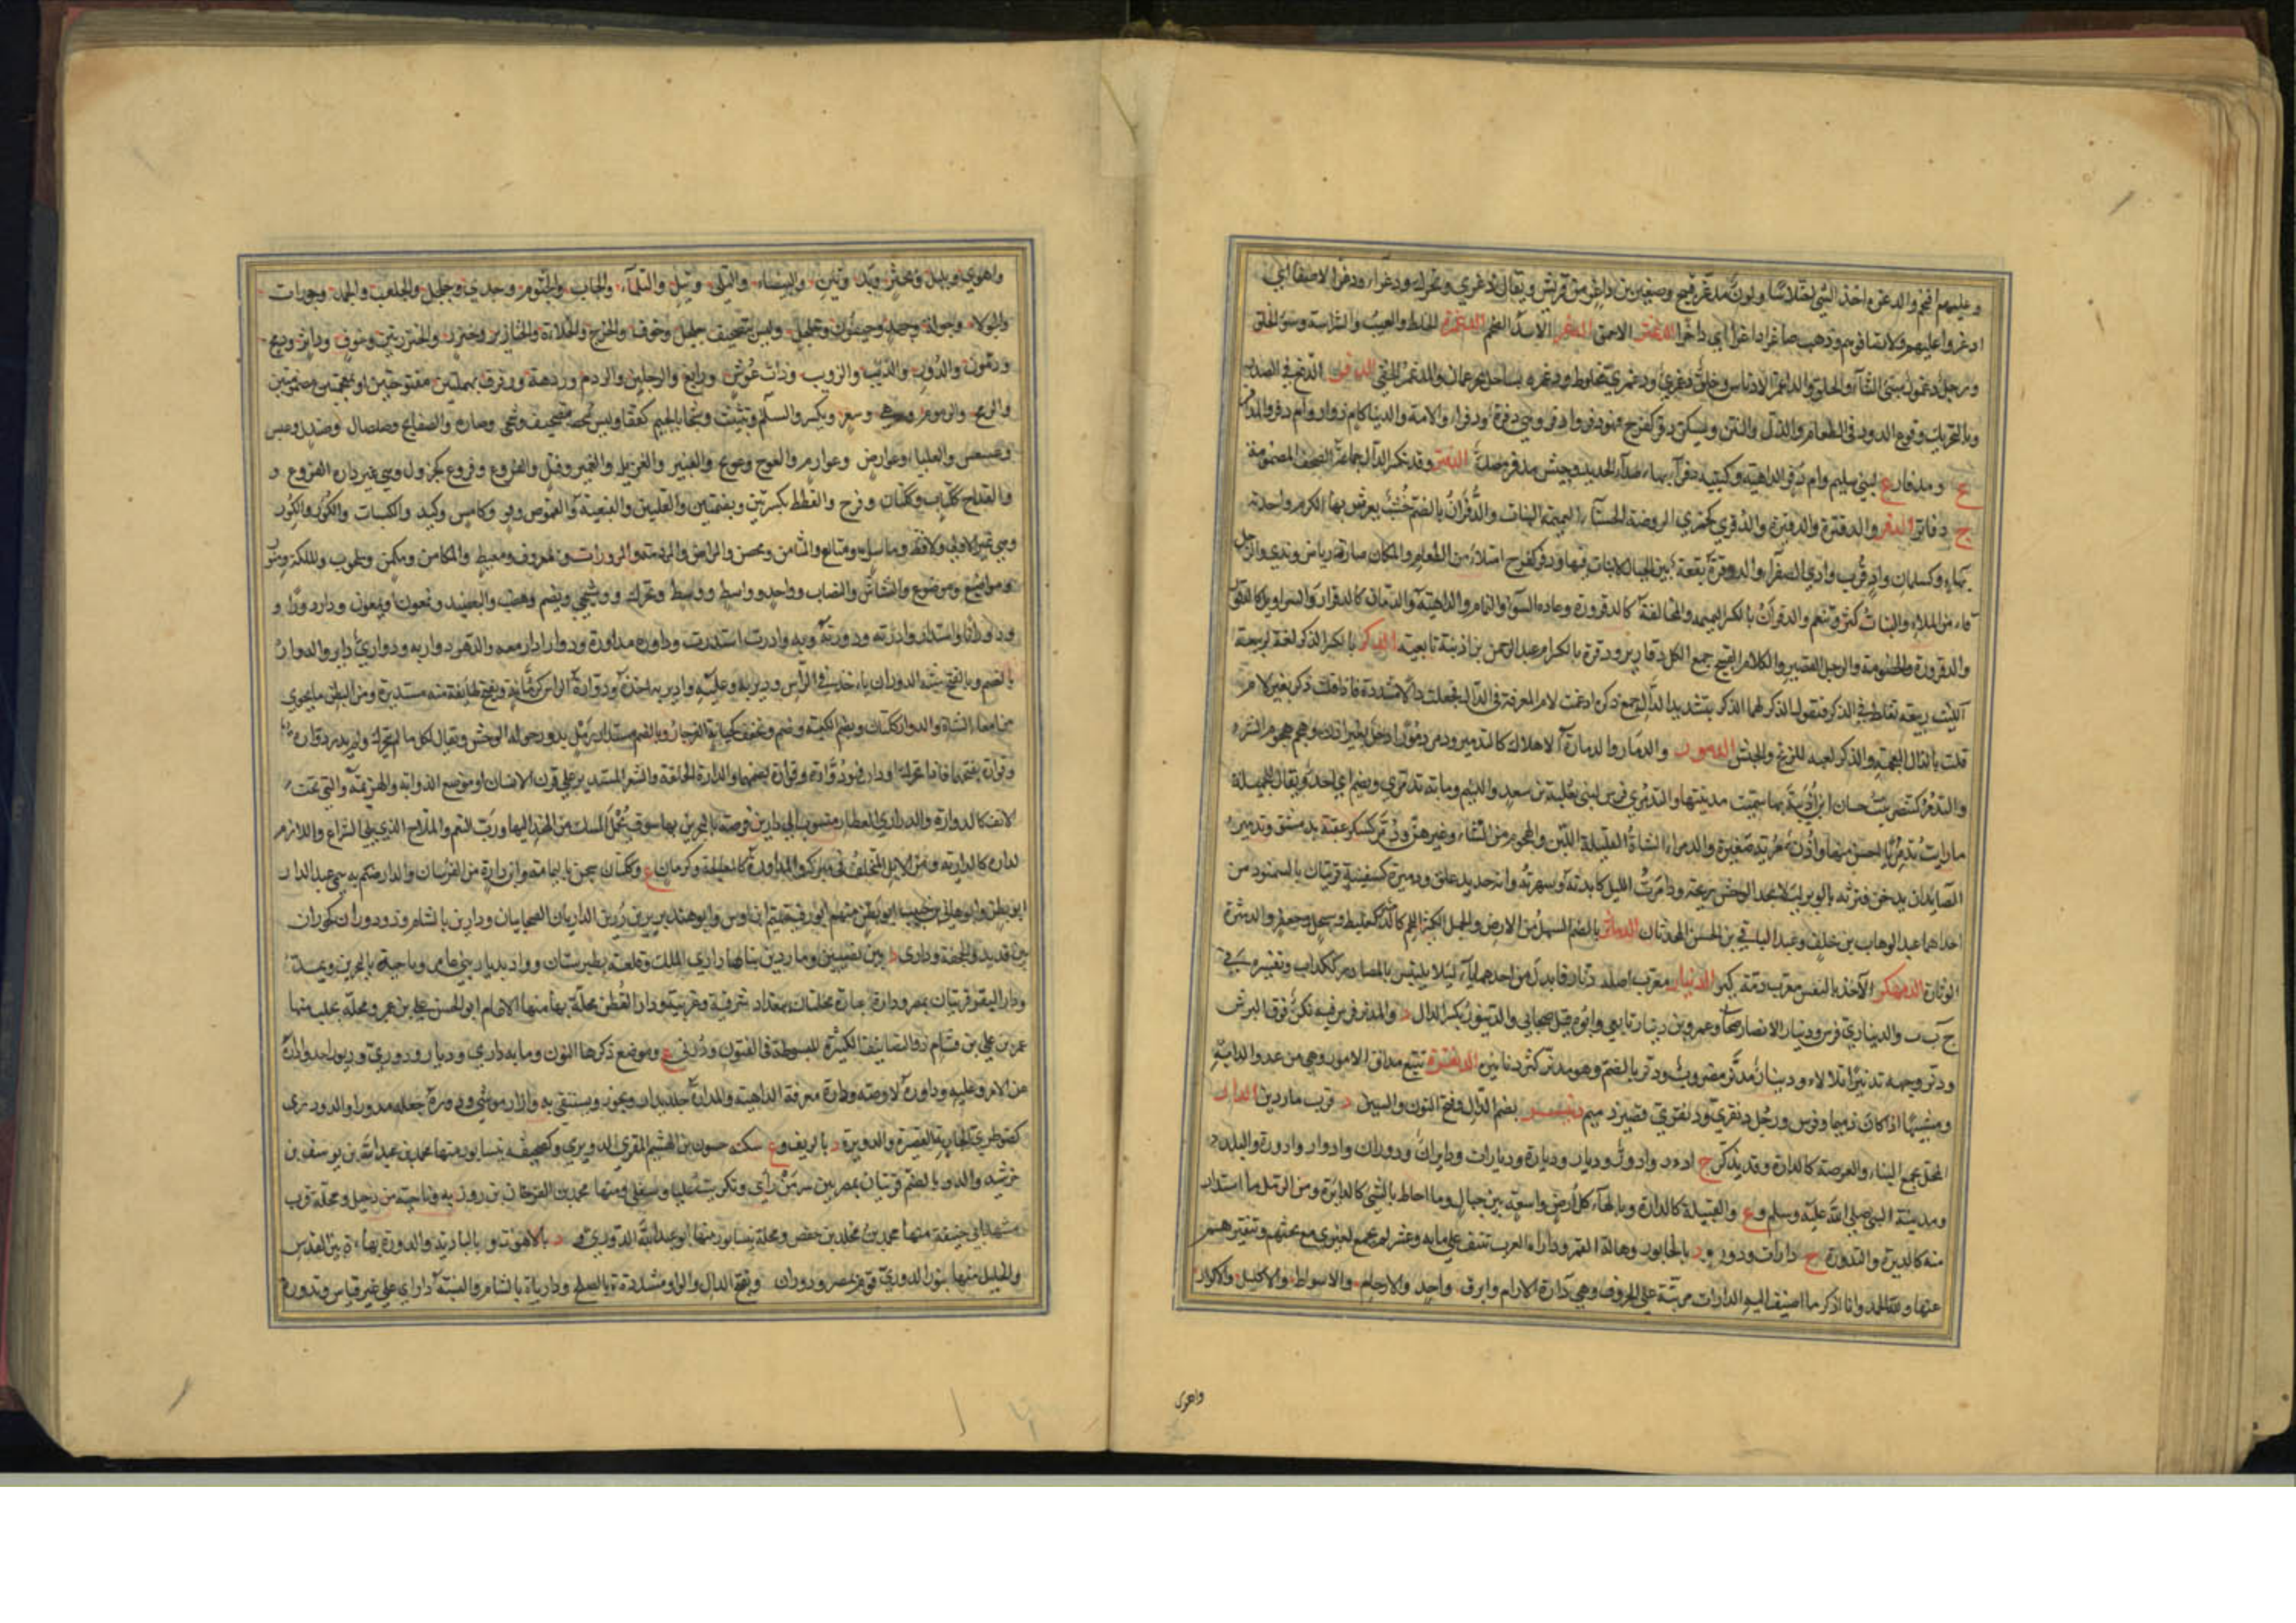 وعليهم اقتحم والدغرة اخذ الشي اختلاسا ولون مدغر قبيح وصغير بن داغر من قريش ويقال دغرى ويحرك ودغراء ودغرا لا صفا اي
ادغروا عليهم ولا تصافوهم وذهب صاغرا داغرا اي داخرا الدغثر الاحمق الدغفر الاسد الضخم الدغمرة الخلط والعيب والشراسة وسوء الخلق
ورجل دغمور سيئ الثناء والخلق والداغمر الادناس وخلق دغمري ودغمري مخلوط ودغمر بساحل بحر عمان والمدغمر الخفي الدفر الدفع في الصدر
وبالتحريك وقوع الدود في الطعام والذل والنتن ويسكن دفر كفرح فهو دفر وادفر وهي دفرة ودفراء والامة والدنيا كام دفار وام دفر والمدافر
ع ومدفار ع لبني سليم وام دفر الداهية وكتيبة دفراء بها صدأ الحديد وجيش مدفر صلد الدفتر وقد تكسر الدال جماعة الصحف المضمومة
ج دفاتر الدقر والدقرة والدقيرة والدقرى كجمزى الروضة الحسناء العميمة النبات والدقران بالضم خشب يعرش بها الكرم واحدته
بهاء وكسلمان واد قرب وادي الصفراء والدوقرة بقعة بين الجبال لا نبات فيها ودقر كفرح امتلأ من الطعام والمكان صار ذا رياض وندي والرجل
قاء من الملء والنبات كثر وتنعم والدقرارة بالكسر النميمة والمخالفة كالدقرورة وعادة السوء والنمام والداهية والتبان كالدقرار والسراويل كالدقرور
والدقرورة والخصومة والرجل القصير والكلام القبيح جمع الكل دقارير ودقرة بالكسر ام عبد الرحمن بن اذينة تابعية الدكر بالكسر الذكر لغة لربيعة
الليث ربيعة تغلط في الذكر فتقول الدكر انما الدكر بتشديد الدال جمع ذكرة ادغمت لام المعرفة في الذال فجعلت دالا مشددة فاذا قلت ذكر بغير لام
قلت بالذال المعجمة والدكر لعبة للزنج والحبش الدمور والدمار والدمارة الاهلاك كالتدمير ودمر دمورا دخل بغير اذن وهجم هجوم الشر
والتدمر كتنصر بنت حسان بن اذينة بها سميت مدينتها والتدمري فرس لبني ثعلبة بن سعد واللئيم وما به تدمري ويضم اي احد ويقال للجميلة
ما رايت تدمريا احسن منها واذن تدمرية صغيرة والدمراء الشاة القليلة اللبن والهجوم من النساء وغيرهن ودمر كسكر عقبة بدمشق وتدمير
الصائد ان يدخن قترته بالوبر لئلا يجد الوحش ريحه ودامرت الليل كابدته وسهرته وانه حديد علق ودميرة كسفينة قريتان بالسمنود من
احداهما عبد الوهاب بن خلف وعبد الباقي بن الحسن المحدثان الدماثر بالضم السهل من الارض والجمل الكثير اللحم كالدمثر كعلبط وسبحل وجعفر والدمثرة
الوثارة الدمهكر الآخذ بالنفس معرب دمه كير الدينار معرب اصله دنار فابدل من احدهما ياء لئلا يلتبس بالمصادر ككذاب وتفسيره في
ح ب ب والديناري فرس ودينار الانصاري صحابي وعمرو بن دينار تابعي وابوهم قيل صحابي والدينور بكسر الدال د والمدنر فرس فيه نكت فوق البرش
ودنر وجهه تدنيرا تلألأ ودينار مدنر مضروب ودنر بالضم فهو مدنر كثر دنانيره الدنقرة تتبع مداق الامور وهي من عدو الدابة
ومشيها اذا كان ذميما وفرس ورجل دنقري ودنقري قصير دميم دنيسر بضم الدال وفتح النون والسين د قرب ماردين الدار
المحل يجمع البناء والعرصة كالدارة وقد يذكر ج ادؤر وادور وديار وديارة وديارات وديران ودوران وادوار وادورة والبلد
ومدينة النبي صلى الله عليه وسلم وع والقبيلة كالدارة وبالهاء كل ارض واسعة بين جبال وما احاط بالشي كالدائرة ومن الرمل ما استدار
منه كالديرة والتدورة ج دارات ودور ود بالخابور وهالة القمر ودارات العرب تنيف على مائة وعشر لم تجتمع لغيري مع بحثهم وتنقيرهم
عنها ولله الحمد وانا اذكر ما اضيف اليه الدارات مرتبة على الحروف وهي دارة الارام وابرق واحد والارحام والاسواط والاكليل والاكوار
واهوى
واهوى وباسل وبحثر وبدلا وتيل والبيضاء والتلى وتيل والثلماء والجاب والجثوم وجدى وجلجل والجلعب والجمد وجودات
والجولاء وجولة وجهد وجيفون وحلحل وليس بتصحيف جلجل وحوق والخرج والخلاءة والخنازير وخنزر والخنزيرتين وخو وداثر ودمخ
ودمون والدور والذئب والذويب وذات عرش ورابغ والرجلين والردم وردهة ورفرف بمهملتين مفتوحتين او بمعجمتين مضمومتين
والرمح والرمرم ورهبى وسعر ويكسر والسلم وشبيث وشجا بالجيم كقفا وليس بتصحيف وشحى وصارة والصفائح وصلصل وصندل وعبس
وعسعس والعلياء وعوارض وعوارم والعوج وعويج والغبير والغزيل والغمير وفتك والفروع وفروع كجرول وهي غير دارة الفروع و
والقداح ككتاب وككتان وقرح والقطقط بكسرتين وبضمتين والقلتين والقنعبة والقموص وقو وكامس وكبد والكبسات والكور والكور
وهي غير الاولى ولاقط وماسل ومتالع والمثامن ومحصن والمراض والمردمة والمرورات ومعروف ومعيط والمكامن ومكمن وملحوب والملكة ومنور
ومواضيع وموضوع والنشاش والنصاب وواحد وواسط ووسط وتحرك ووشحى ويضم وهضب واليعضيد ويمعون او يمغون ودار دورا و
ودورانا واستدار وادرته ودورته وبه وادرت استدرت وداوره مداورة ودوارا دار معه والدهر دوار به ودواري دائر والدوار
بالضم وبالفتح شبه الدوران ياخذ في الرأس ودير به وعليه وادير به اخذه ودوارة الراس كرمانة ويفتح طائفة منه مستديرة ومن البطن ما تحوى
من امعاء الشاة والدوار ككتان ويضم الكعبة وصنم ويخفف كجبانة الفرجار وبالضم مستدار رمل يدور حوله الوحش ويقال لكل ما لم يتحرك ولم يدر دوارة
وفوارة بفتحهما فاذا تحرك او دار فهو دوارة وفوارة بضمهما والدارة الحلقة والشعر المستدير على قرن الانسان او موضع الذؤابة والهزيمة والتي تحت
الانف كالدوارة والداري العطار منسوب الى دارين فرضة بالبحرين بها سوق يحمل المسك من الهند اليها ورب النعم والملاح الذي يلي الشراع واللازم
لداره كالداريه ومن الابل المتخلف في مبركه والمداورة كالمعالجة وكرمان ع وككتان سجن باليمامة وابن دارة من الفرسان والدار صنم به سمي عبد الدار
ابو بطن وابو هاني بن حبيب ابو بطن منهم ابو رقية تميم بن اوس وابو هند برير بن رزين الداريان الصحابيان ودارين بالشام وذو دوران كحوران
بين قديد والجحفة ودارا د بين نصيبين وماردين بناها دارا بن دارا الملك وقلعة بطبرستان وواد بديار بني عامر وناحية بالبحرين ويمد
ودار البقر قريتان بمصر ودار عمارة محلتان ببغداد شرقية وغربية ودار القطن محلة بها منها الامام ابو الحسن علي بن عمر ومحلة بحلب منها
عمر بن علي بن قشام ذو التصانيف الكثيرة المبسوطة في الفنون ودرنى ع وموضع ذكرها النون وما به داري وديار ودوري وديور احد وادارة
عن الامر وعليه وداوره لاوصه ودارة معرفة الداهية والمدارة جلد يدار ويخرز ويستقى به وازار موشى ودوره جعله مدورا والدودرى
كصوطرى الجارية القصيرة والدويرة د بالريف وع سكنه حسون بن الهيثم المقرئ الدويري وكجهينة بنيسابور منها محمد بن عبد الله بن يوسف بن
خرشيد والدور بالضم قريتان بمصر بين سر من رأى وتكريت عليا وسفلى ومنها محمد بن الفرخان بن روزبه وناحية من دجيل ومحلة قرب
مشهد ابي حنيفة منها محمد بن مخلد بن حفص ومحلة بنيسابور منها ابو عبد الله الدوري و د بالاهواز و بالبادية والدورة بهاء بين القدس
والخليل منها بنو الدوري قوم بمصر ودوران وبفتح الدال والواو مشددة بالصلح وداريا بالشام والنسبة داراني على غير قياس وتدورة